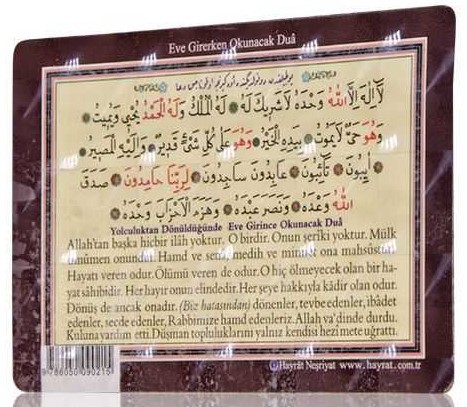 Eve Girerken Okunacak Duâ
لَٓا اِلٰهَ اِلَّا اللّٰهُ وَحْدَهُ لَاشَر۪يكَ لَهُ لَهُ الْمُلْكُ وَلَهُ الْحَمْدُ يُحْي۪ي وَيُم۪يتُ
وَهُوَ حَيٌّ لَايَمُوتُ بِيَدِهِ الْخَيْرُ وَهُوَ عَلٰى كُلِّ شَيْءٍ قَد۪يرٌ وَاِلَيْهِ الْمَص۪يرُ
اٰيِبُونَ تَٓائِبُونَ عَابِدُونَ سَاجِدُونَ لِرَبِّنَا حَامِدُونَ صَدَقَ
اللّٰهُ وَعْدَهُ وَنَصَرَ عَبْدَهُ وَهَزَمَ الْاَحْزَابَ وَحْدَهُ
Yolculuktan Dönüldüğünde Eve Girince Okunacak Duâ
Allah'tan başka hiçbir ilâh yoktur. O birdir. Onun şeriki yoktur. Mülk
umûmen onundur. Hamd ve senâ, medih ve minnet ona mahsûstur.
Hayatı veren odur. Ölümü veren de odur. O hiç ölmeyecek olan bir ha-
yat sâhibidir. Her hayır onun elindedir. Her şeye hakkıyla kâdir olan odur.
Dönüş de ancak onadır. (Biz hatasından) dönenler, tevbe edenler, ibâdet
edenler, secde edenler, Rabbimize hamd edenleriz. Allah va'dinde durdu.
Kuluna yardım etti. Düşman topluluklarını yalnız kendisi hezîmete uğrattı.
9 786050 090215
Hayrât Neşriyat www.hayrat.com.tr